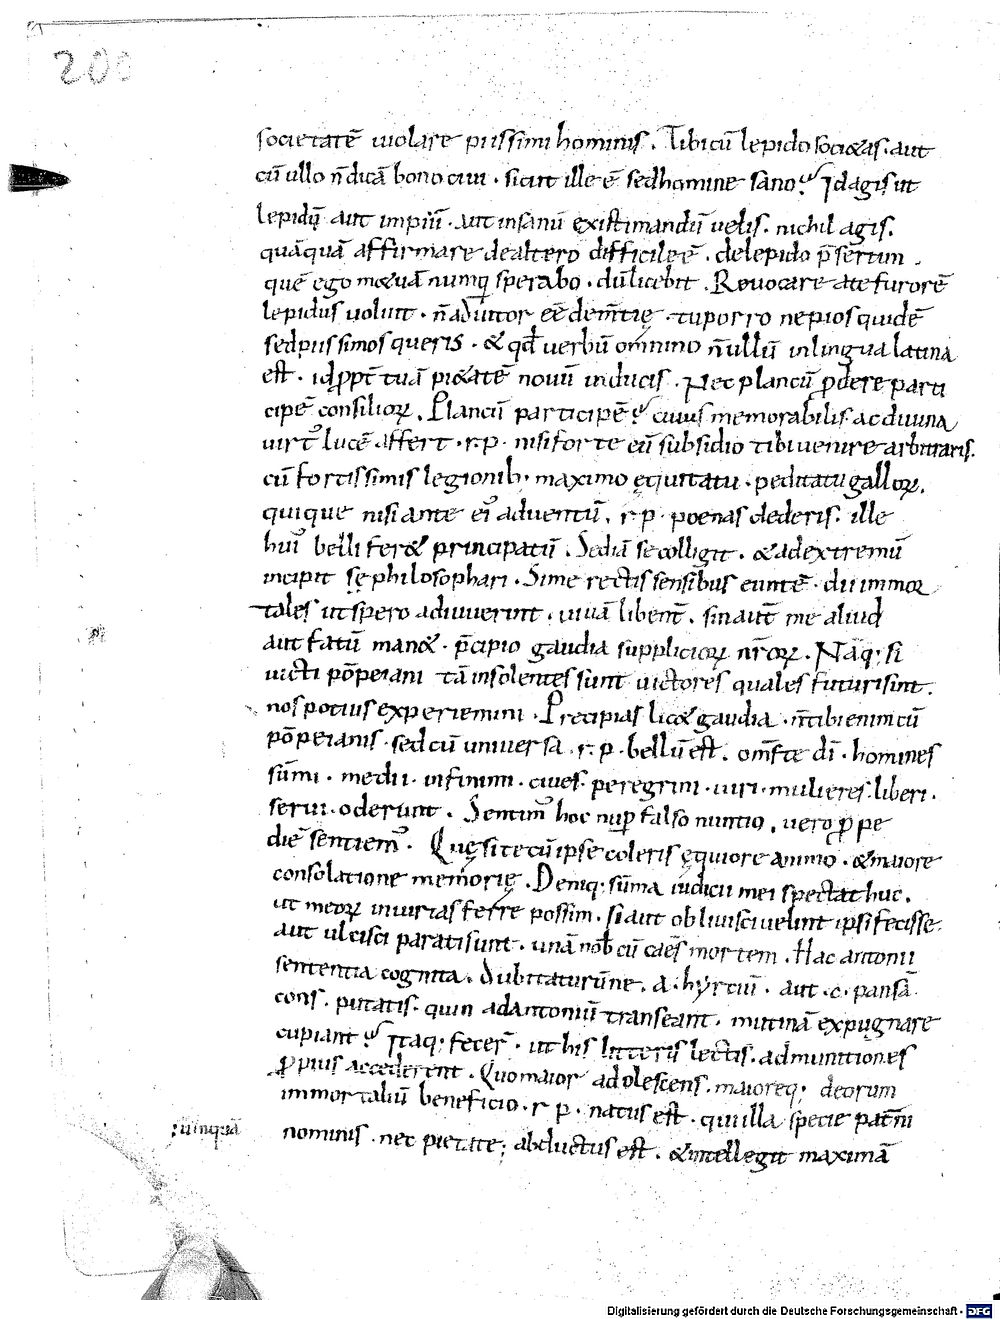 200
societatē uiolare piissimi hominis. Tibi cū lepido soci&as. aut
cū ullo ñ dicā bono ciui. sicut ille ē sed homine sano? Id agis ut
lepidū aut impiū. aut insanū existimandū uelis. nichil agis.
quāquā affirmare de altero difficile ē. de lepido p̄sertim.
quē ego m&uā numq sperabo. dū licebit. Reuocare a te furorē
lepidus uoluit. ñ adiutor eē dem̄tię. tu porro ne pios quidē
sed piissimos queris. & qd̄ uerbū om̄ino ñ ullū in lingua latina
est. id ꝓpt̄ tuā pi&atē nouū inducis. Nec plancū ꝓdere parti
cipē consilioꝝ. Plancū participē? cuius memorabilis ac diuina
uirt᷒ lucē affert. r. p. nisi forte eū subsidio tibi uenire arbitraris.
cū fortissimis legionib; maximo equitatu. peditatu galloꝝ.
quique nisi ante ei᷒ aduentū. r. p. poenas dederis. ille
hui᷒ belli fer& principatū. Sed iā se colligit. & ad extremū
incipit sę philosophari. Si me rectis sensibus euntē. dii immor
tales ut spero adiuuerint. uiuā libent̄. sin aut̄ me aliud
aut fatū man&. p̄cipio gaudia supplicioꝝ nr̄oꝝ. Nāq; si
uicti pōpeiani tā insolentes sunt uictores quales futuri sint.
nos potius experiemini. Precipias lic& gaudia. ñ tibi enim cū
pōpeianis. sed cū uniuersa. r. p. bellū est. om̄s te di. homines
sūmi. medii. infimi. ciues. peregrini. uiri. mulieres. liberi.
serui. oderunt. Sentim᷒ hoc nuꝑ falso nuntio. uero ꝓpe
diē sentiem᷒. Quę si tecū ipse coleris ęquiore animo. & maiore
consolatione memorię. Deniq; sūma iudicii mei spectat huc.
ut meoꝝ iniurias ferre possim. si aut obliuisci uelint ipsi fecisse.
aut ulcisci parati sunt. unā nob cū caes mortem. Hac antonii
sententia cognita. dubitaturūne. a. hyrtiū. aut. c. pansā.
cons. putatis. quin ad antoniū transeant. mutinā expugnare
cupiant? Itaq; fecer̄. ut his litteris lectis. ad munitiones
ꝓpius accederent. Quo maior adolescens. maioreq; deorum
immortaliū beneficio. r. p. natus est. qui illa specie patr̄ni
nominis. nec pietate; abductus est. & intellegit maximā
umquā
Digitalisierung gefördert durch die Deutsche Forschungsgemeinschaft - DFG